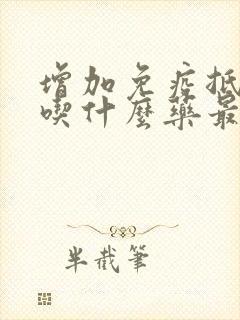 增加免疫抵
喫什麼藥最
半截筆